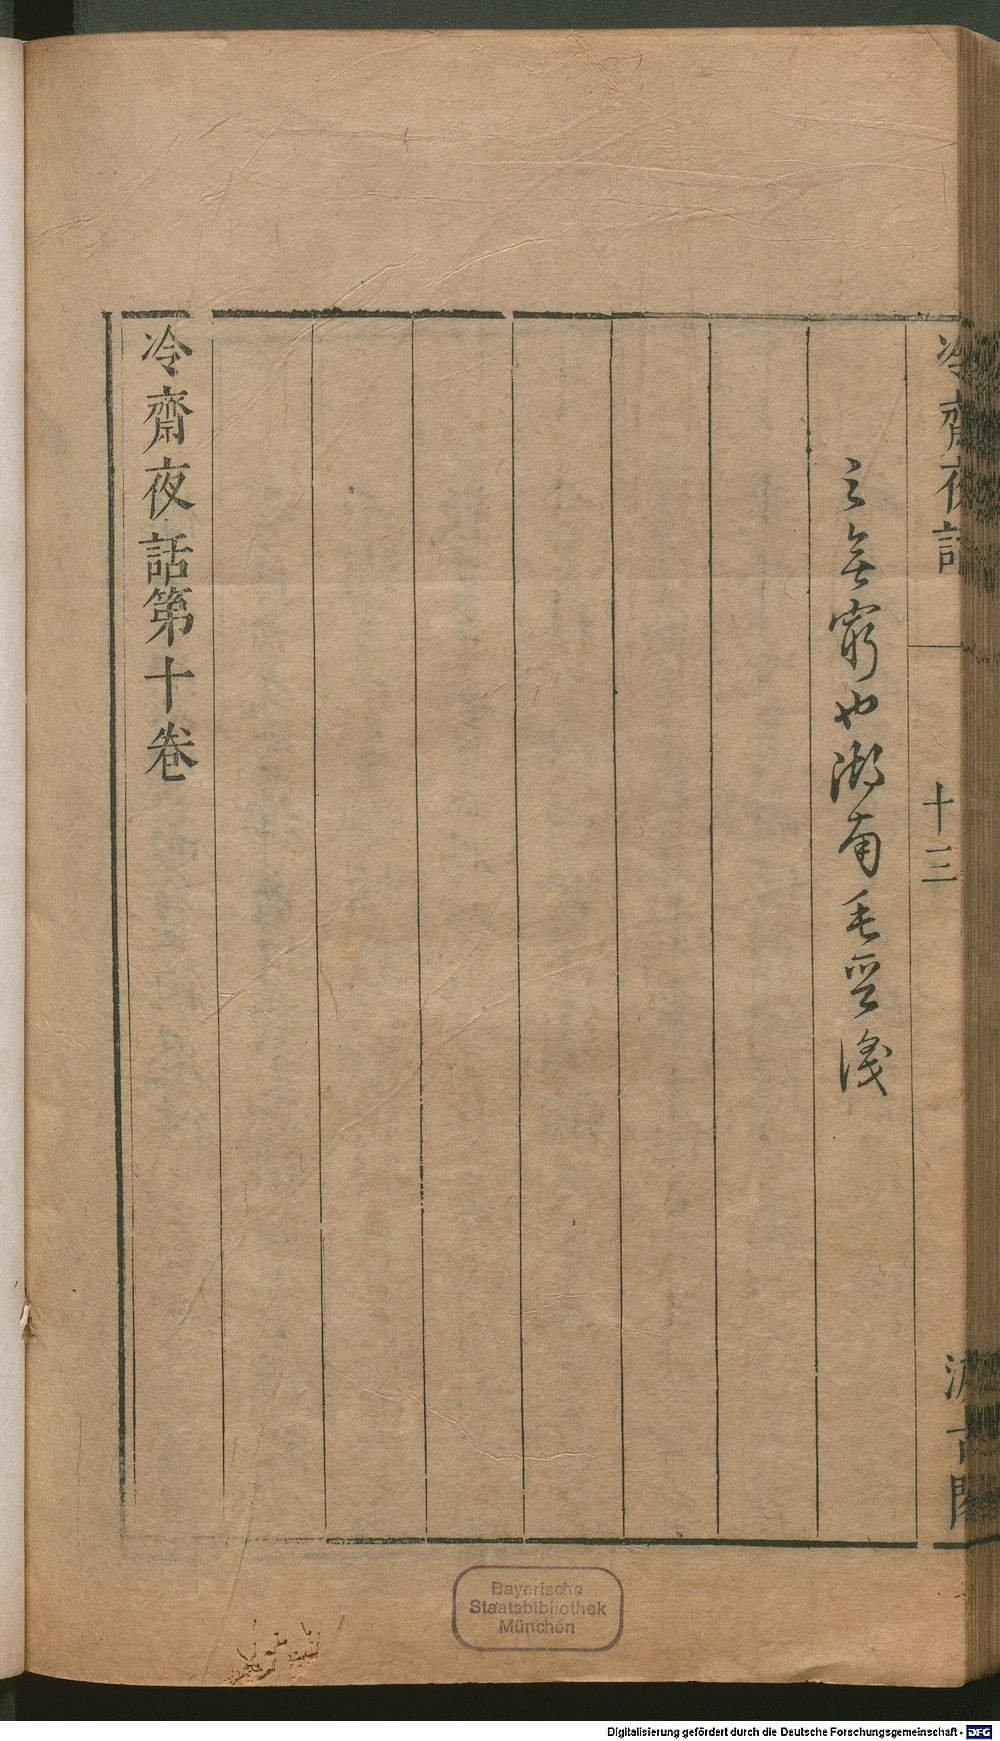 冷齋夜話
十三
汲古閣
之無窮也湖南毛晉識
冷齋夜話第十卷
Bayerische
Staatsbibliothek
München
Digitalisierung gefördert durch die Deutsche Forschungsgemeinschaft - DFG